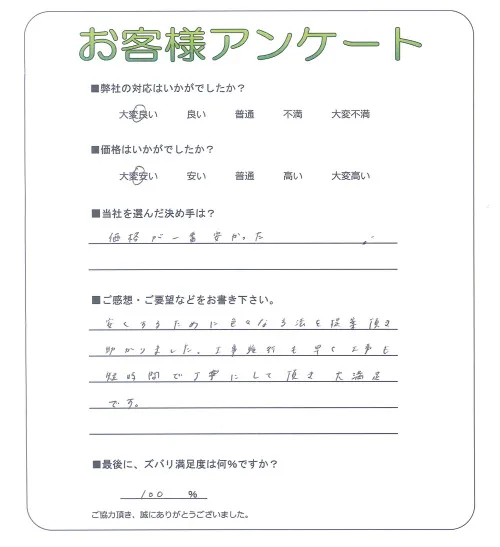 お客様アンケート
■弊社の対応はいかがでしたか？
大変良い 良い 普通 不満 大変不満
■価格はいかがでしたか？
大変安い 安い 普通 高い 大変高い
■当社を選んだ決め手は？
価格が一番安かった
■ご感想・ご要望などをお書き下さい。
安くするために色々な方法を提案頂き
助かりました。工事 も早く工事も
短時間で丁寧にして頂き大満足
です。
■最後に、ズバリ満足度は何%ですか？
100 %
ご協力頂き、誠にありがとうございました。